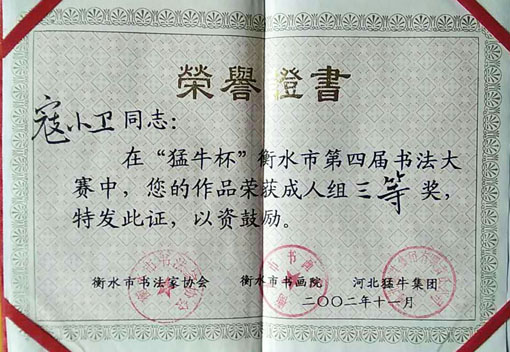 榮譽證書
寇小卫同志：
在“猛牛杯”衡水市第四届书法大
赛中，您的作品荣获成人组三等奖，
特发此证，以资鼓励。
衡水市书法家协会 衡水市书画院 河北猛牛集团
二〇〇二年十一月